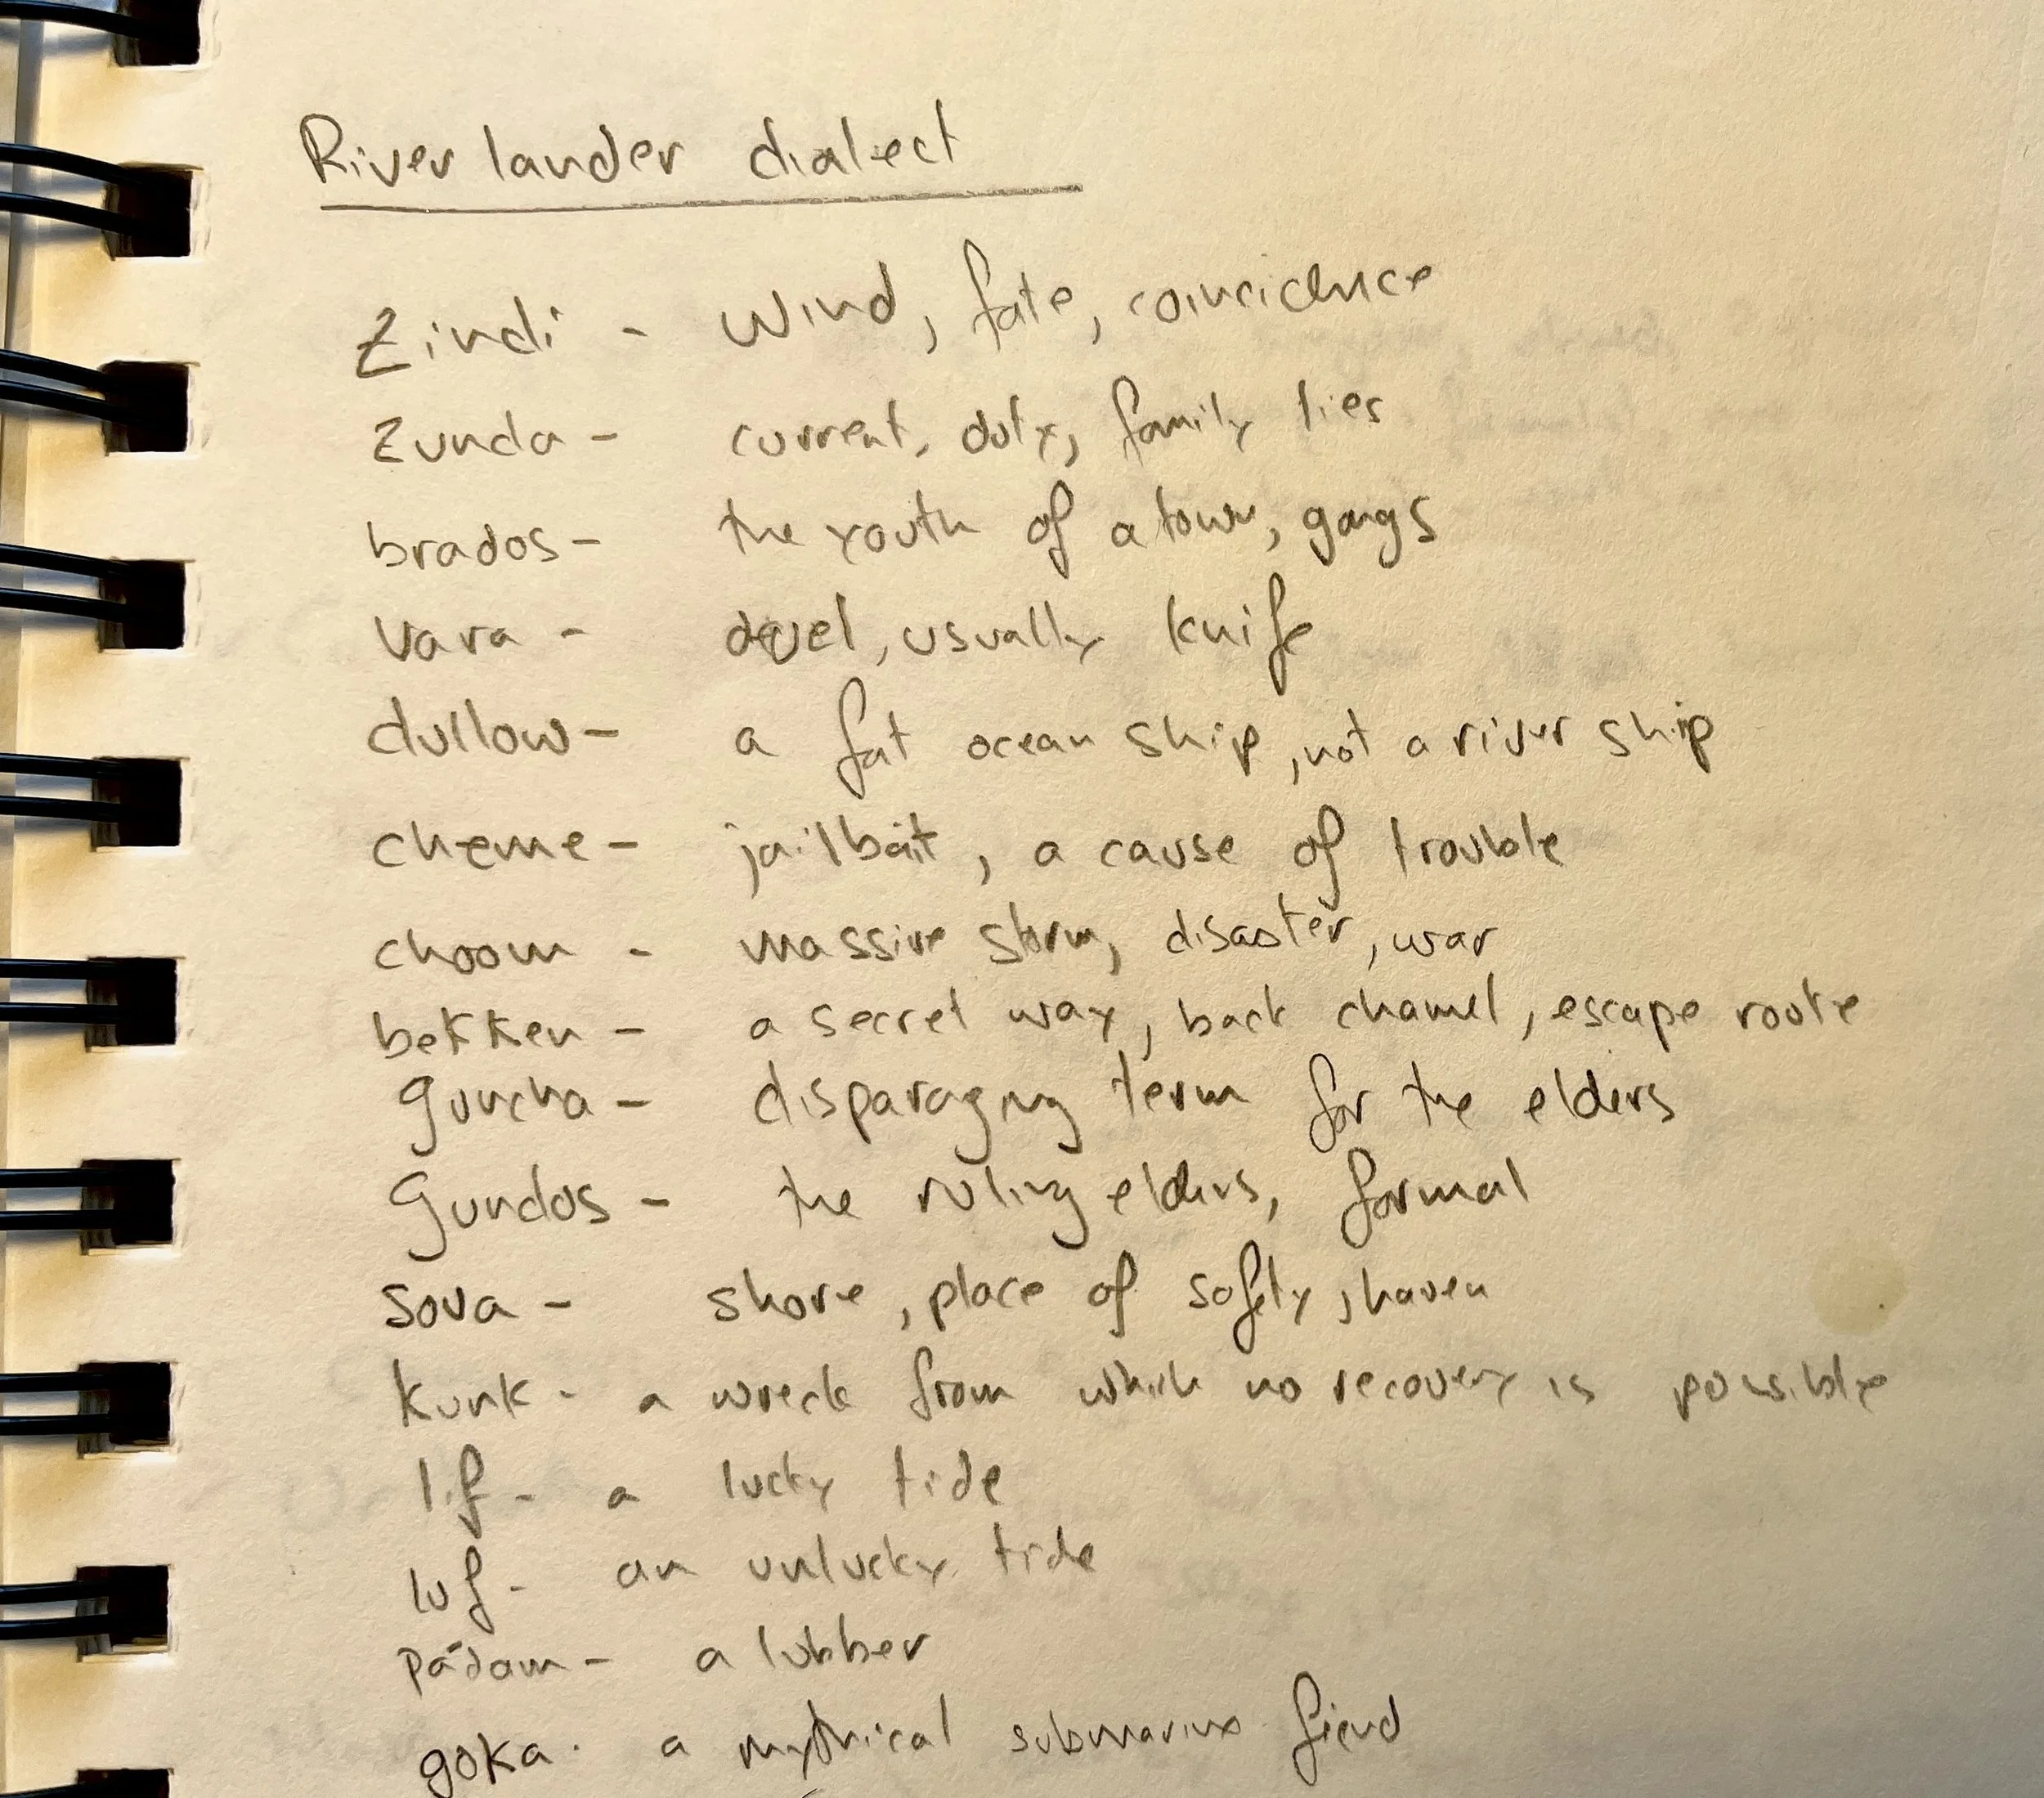 Riverlander dialect
Zindi - wind, fate, coincidence
Zunda - current, duty, family ties
brados - the youth of a town, gangs
vara - duel, usually knife
dullow - a fat ocean ship, not a river ship
cheme - jailbait, a cause of trouble
choom - massive storm, disaster, war
bekken - a secret way, back channel, escape route
guncha - disparaging term for the elders
Gundos - the ruling elders, formal
sova - shore, place of safety, haven
kunk - a wreck from which no recovery is possible
lif - a lucky tide
luf - an unlucky tide
pádam - a lubber
goka - a mythical submarine fiend